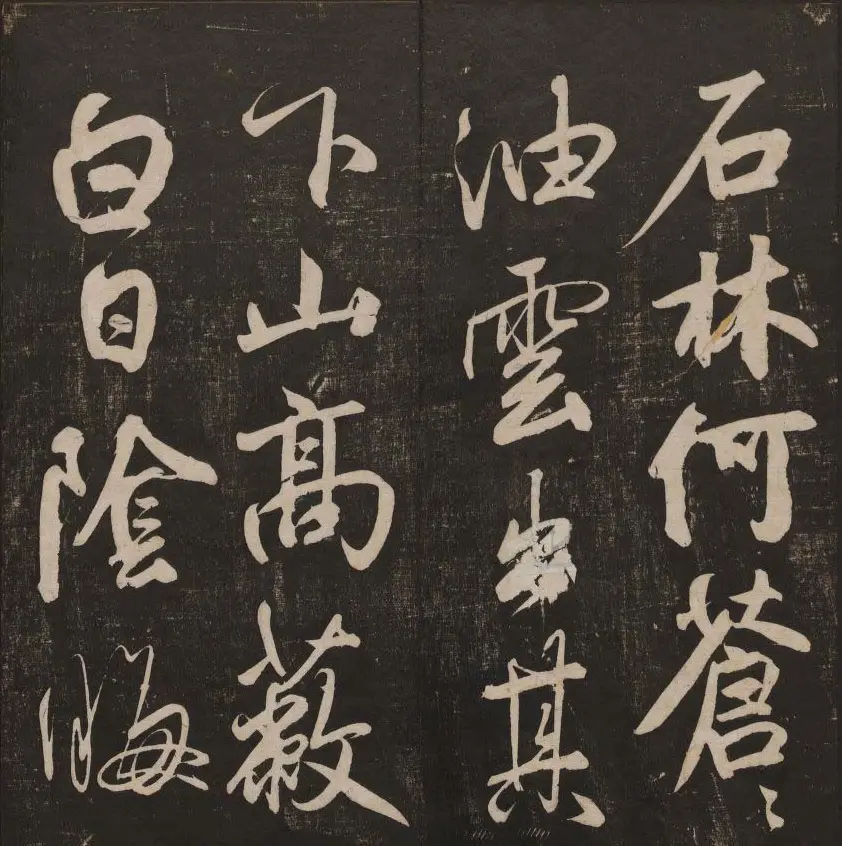 石林何蒼〻
油雲出其
下山髙蔽
白日陰晦